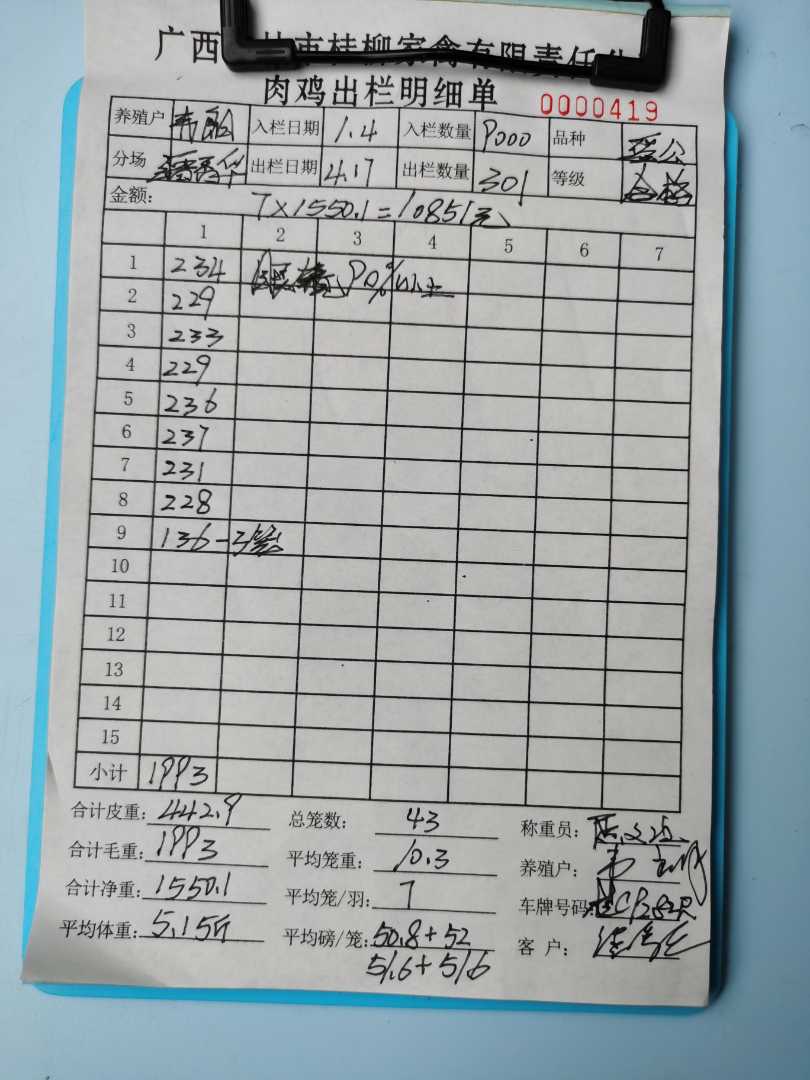 广西 市桂柳家禽有限责任公
肉鸡出栏明细单 0000419
养殖户 韦 入栏日期 1.4 入栏数量 9000 品种 公
分场 出栏日期 4.17 出栏数量 301 等级 合格
金额: 7×1550.1=10851元
1 2 3 4 5 6 7
1 234 90%以上
2 229
3 233
4 229
5 236
6 237
7 231
8 228
9 136-3笼
10
11
12
13
14
15
小计 1993
合计皮重: 442.9 总笼数: 43 称重员:
合计毛重: 1993 平均笼重: 10.3 养殖户: 韦
合计净重: 1550.1 平均笼/羽: 7 车牌号码
平均体重: 5.15斤 平均磅/笼: 50.8+52 客 户:
51.6+51.6